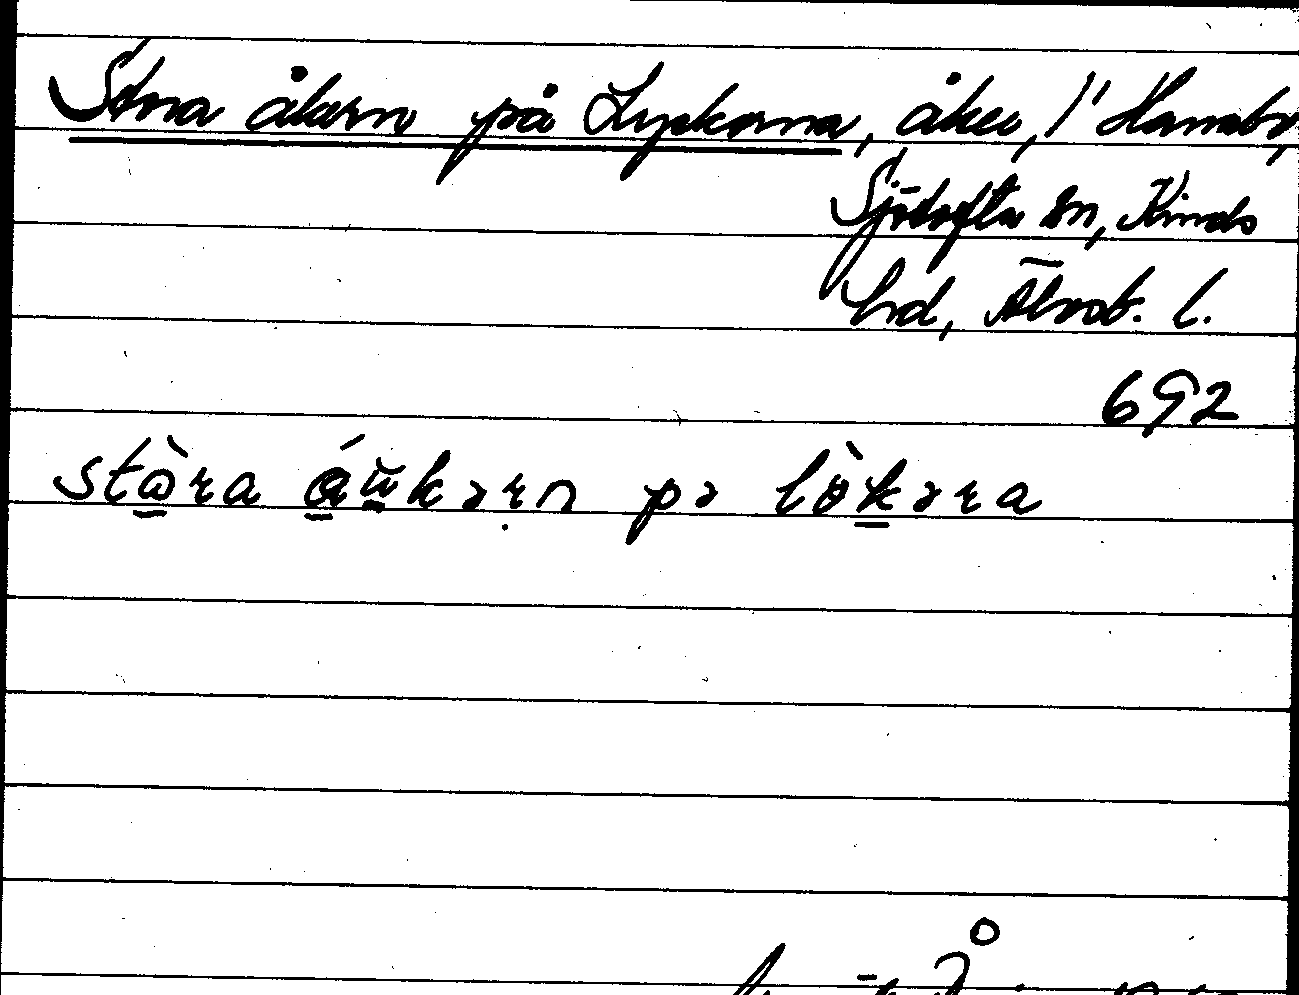 Stora åkern på Lyckorna, åker, 1' Hanabo,
Sjötofta sn, Kinds
hd, Älvsb. l.
692
stòra áŭkərn pə lòkərna